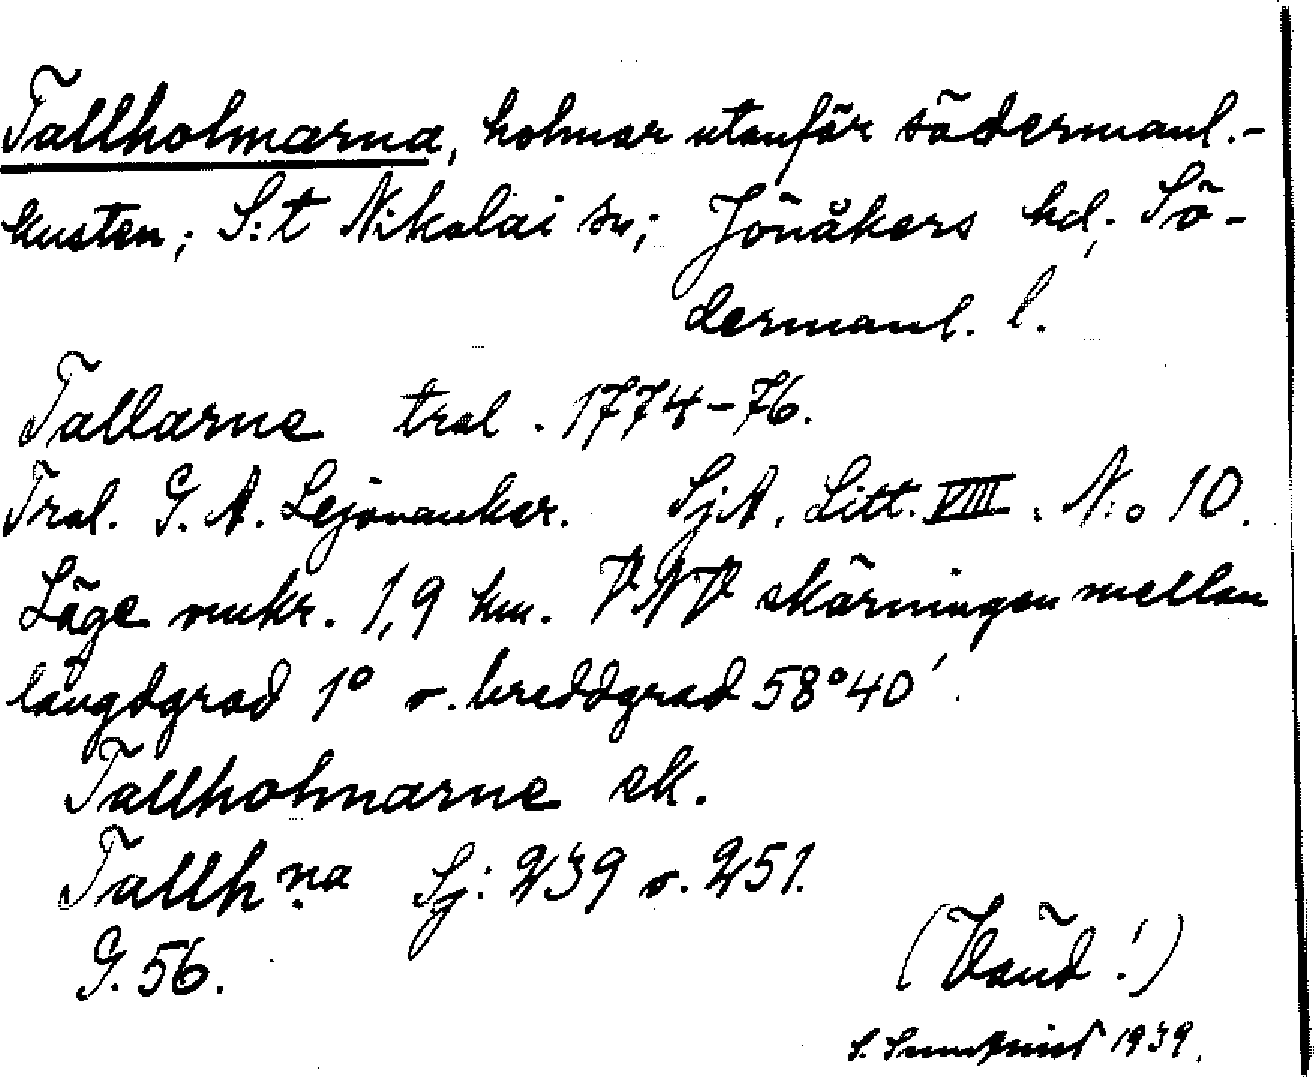 Tallholmarna, holmar utanför södermanl.-
kusten; S:t Nikolai sn; Jönåkers hd; Sö-
dermanl. l.
Tallarne tral. 1774-76.
Tral. G. A. Lejonankar. SjA. Litt. VIII. N:o 10.
Läge omkr. 1,9 km. VNV skärningen mellan
längdgrad 1° o. breddgrad 58°40'.
Tallholmarne ek.
Tallh.na Sj: 239 o. 251.
G. 56.
(Vänd!)
S. Sundqvist 1939.